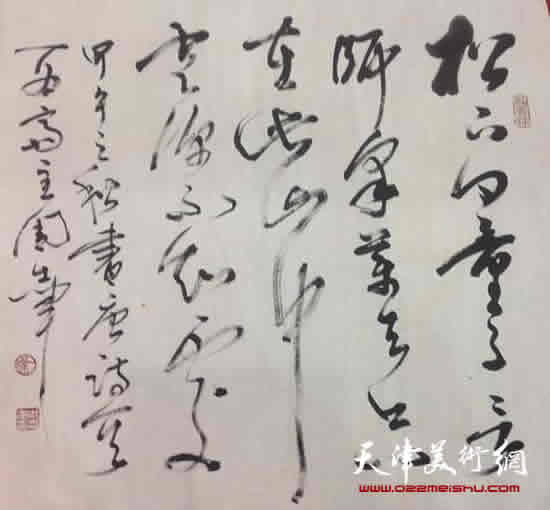 松下問童子言
師采藥去只
在此山中
雲深不知處
甲午之秋書唐詩
齋主
天津美術網
www.022meishu.com